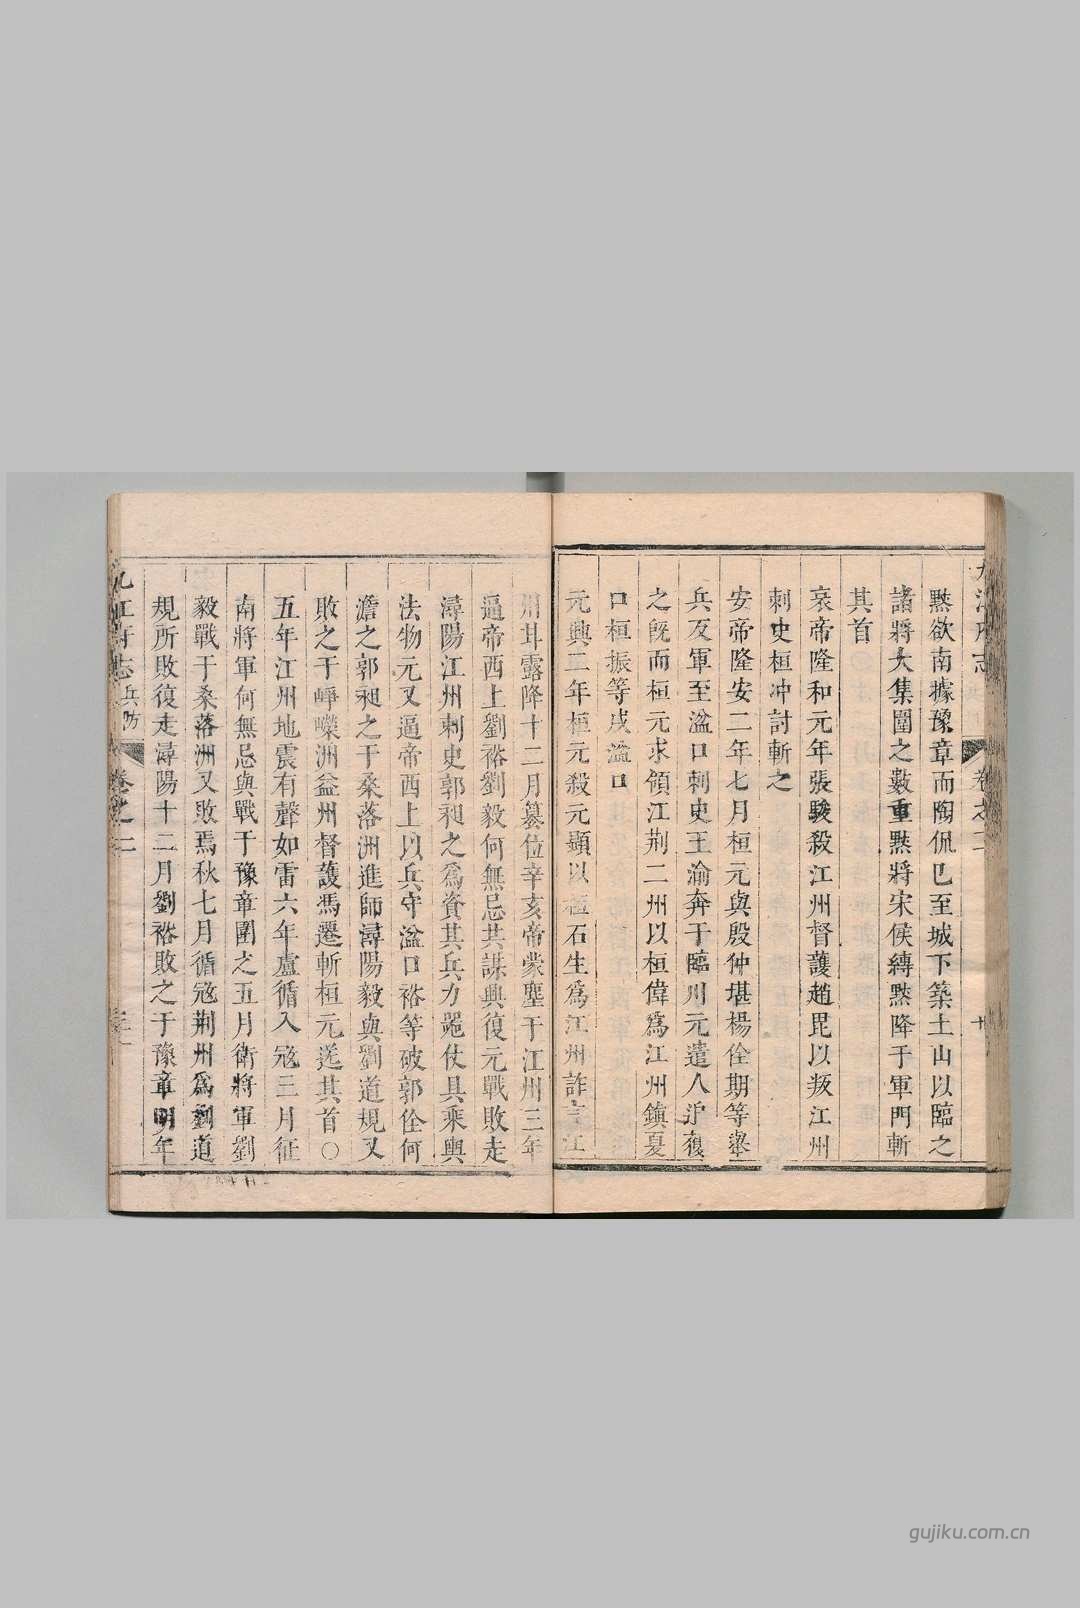 黙欲南據豫章而陶侃巳至城下築土山以臨之
諸將大集圍之數重黙將宋侯縛黙降于軍門斬
其首
哀帝隆和元年張駿殺江州督護趙毘以叛江州
刺史桓冲討斬之
安帝隆安二年七月桓元與殷仲堪楊佺期等舉
兵反軍至湓口刺史王渝奔于臨川元遣人
之旣而桓元求領江荆二州以桓偉爲江州鎮夏
口桓振等戍湓口
元興二年桓元殺元顯以桓石生爲江州詐言江
州甘露降十二月篡位辛亥帝蒙塵于江州三年
逼帝西上劉裕劉毅何無忌共謀興復元戰敗走
潯陽江州刺史郭昶之爲資其兵力噐仗具乘輿
法物元又逼帝西上以兵守湓口裕等破郭佺何
澹之郭昶之于桑落洲進師潯陽毅與劉道規又
敗之于崢嶸洲益州督護馮遷斬桓元送其首○
五年江州地震有聲如雷六年盧循入寇三月征
南將軍何無忌與戰于豫章圍之五月衛將軍劉
毅戰于桑落洲又敗焉秋七月循寇荆州爲劉道
規所敗復走潯陽十二月劉裕敗之于豫章明年
九江府志 兵防 卷之二
gujiku.com.cn